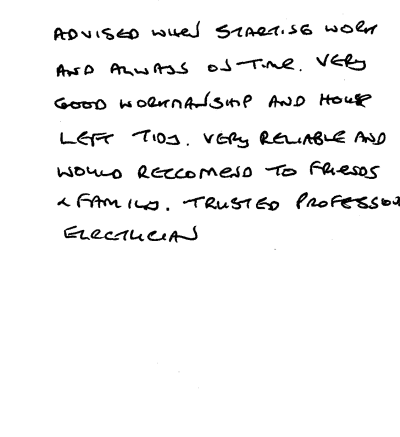 ADVISED WHEN STARTISE WORK
AND ALWAYS ON TIME. VERY
GOOD WORKMANSHIP AND HOUSE
LEFT TIDY. VERY RELIABLE AND
WOULD RECCOMEND TO FRIENDS
& FAMILY. TRUSTED PROFESSION
ELECTRICIAN